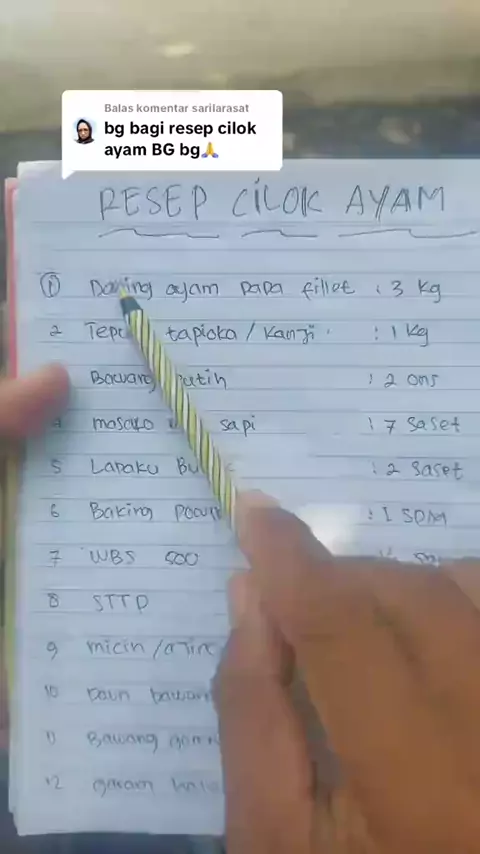 Balas komentar sarilarasat
bg bagi resep cilok
ayam BG bg🙏
RESEP CILOK AYAM
① Daging ayam papa fillet : 3 kg
2 tapioka / Kanji : 1 kg
Bawang putih : 2 ons
masako sapi : 7 saset
5 Ladaku : 2 saset
6 Baking : 1 SDM
7 WBS 500
8 STTP
9 micin /
10 Daun bawang
11 Bawang
12 garam